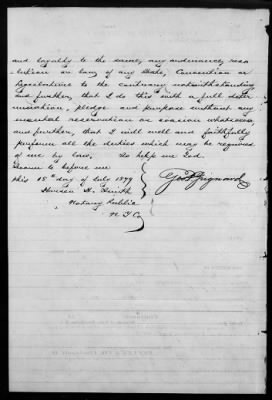 and loyalty to the same, any ordinance, reso
lution or law of any State, Convention or
Legislature to the contrary notwithstanding
and further, that I do this with a full deter
mination, pledge and purpose without any
mental reservation or evasion whatsoever
and further, that I will well and faithfully
perform all the duties which may be required
of me by law. So help me God.
Sworn to before me
this 18th day of July 1879
H. Smith
Notary Public
N. Y. Co
Geo